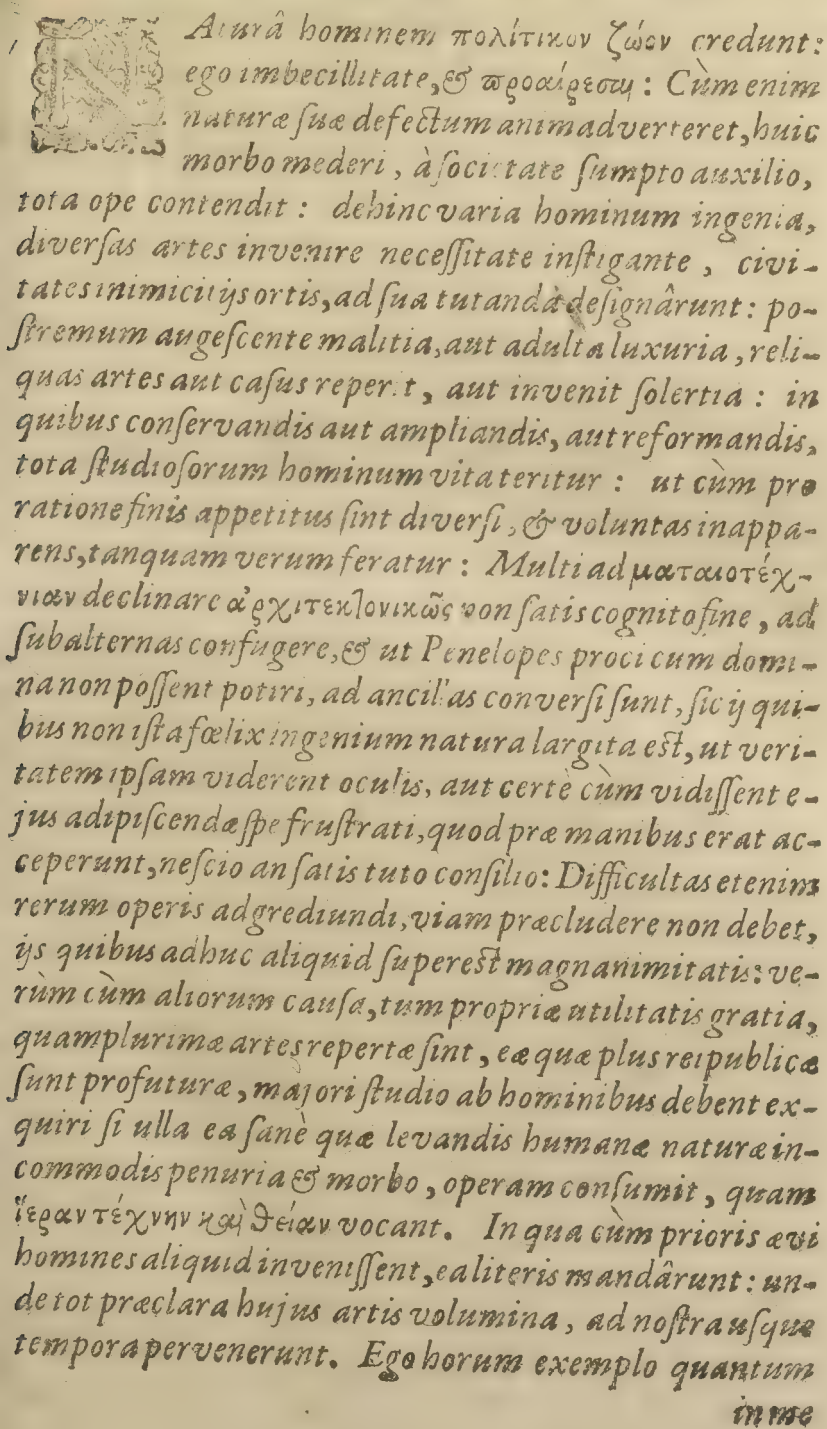 NAturâ hominem πολίτικον ζώον credunt:
ego imbecillitate, & προαίρεση: Cùm enim
naturæ ſuæ defectum animadverteret, huic
morbo mederi, à ſocietate ſumpto auxilio,
tota ope contendit: dehinc varia hominum ingenia,
diverſas artes invenire neceſſitate inſtigante, civi-
tates inimicitijs ortis, ad ſua tutanda deſignârunt: po-
ſtremum augeſcente malitia, aut adulta luxuria, reli-
quas artes aut caſus reperit, aut invenit ſolertia: in
quibus conſervandis aut ampliandis, aut reformandis,
tota ſtudioſorum hominum vita teritur: ut cùm pro
ratione finis appetitus ſint diverſi, & voluntas in appa-
rens, tanquam verum feratur: Multi ad ματαιοτέχ-
νιαν declinare ἀρχιτεκτονικῶς non ſatis cognito fine, ad
ſubalternas confugere, & ut Penelopes proci cum domi-
na non poſſent potiri, ad ancillas converſi ſunt, ſic ij qui-
bus non iſta fœlix ingenium natura largita eſt, ut veri-
tatem ipſam viderent oculis, aut certè cùm vidiſſent e-
jus adipiſcendæ ſpe fruſtrati, quod præ manibus erat ac-
ceperunt, neſcio an ſatis tuto conſilio: Difficultas etenim
rerum operis adgrediundi, viam præcludere non debet,
ijs quibus adhuc aliquid ſupereſt magnanimitatis: ve-
rùm cùm aliorum cauſa, tum propriæ utilitatis gratia,
quamplurimæ artes repertæ ſint, eæ quæ plus reipublicæ
ſunt profuturæ, majori ſtudio ab hominibus debent ex-
quiri ſi ulla ea ſanè quæ levandis humanæ naturæ in-
commodis penuria & morbo, operam conſumit, quam
ἵεραν τέχνην καὶ θείαν vocant. In qua cùm prioris ævi
homines aliquid inveniſſent, ea literis mandârunt: un-
de tot præclara hujus artis volumina, ad noſtra uſque
tempora pervenerunt. Ego horum exemplo quantum
in me